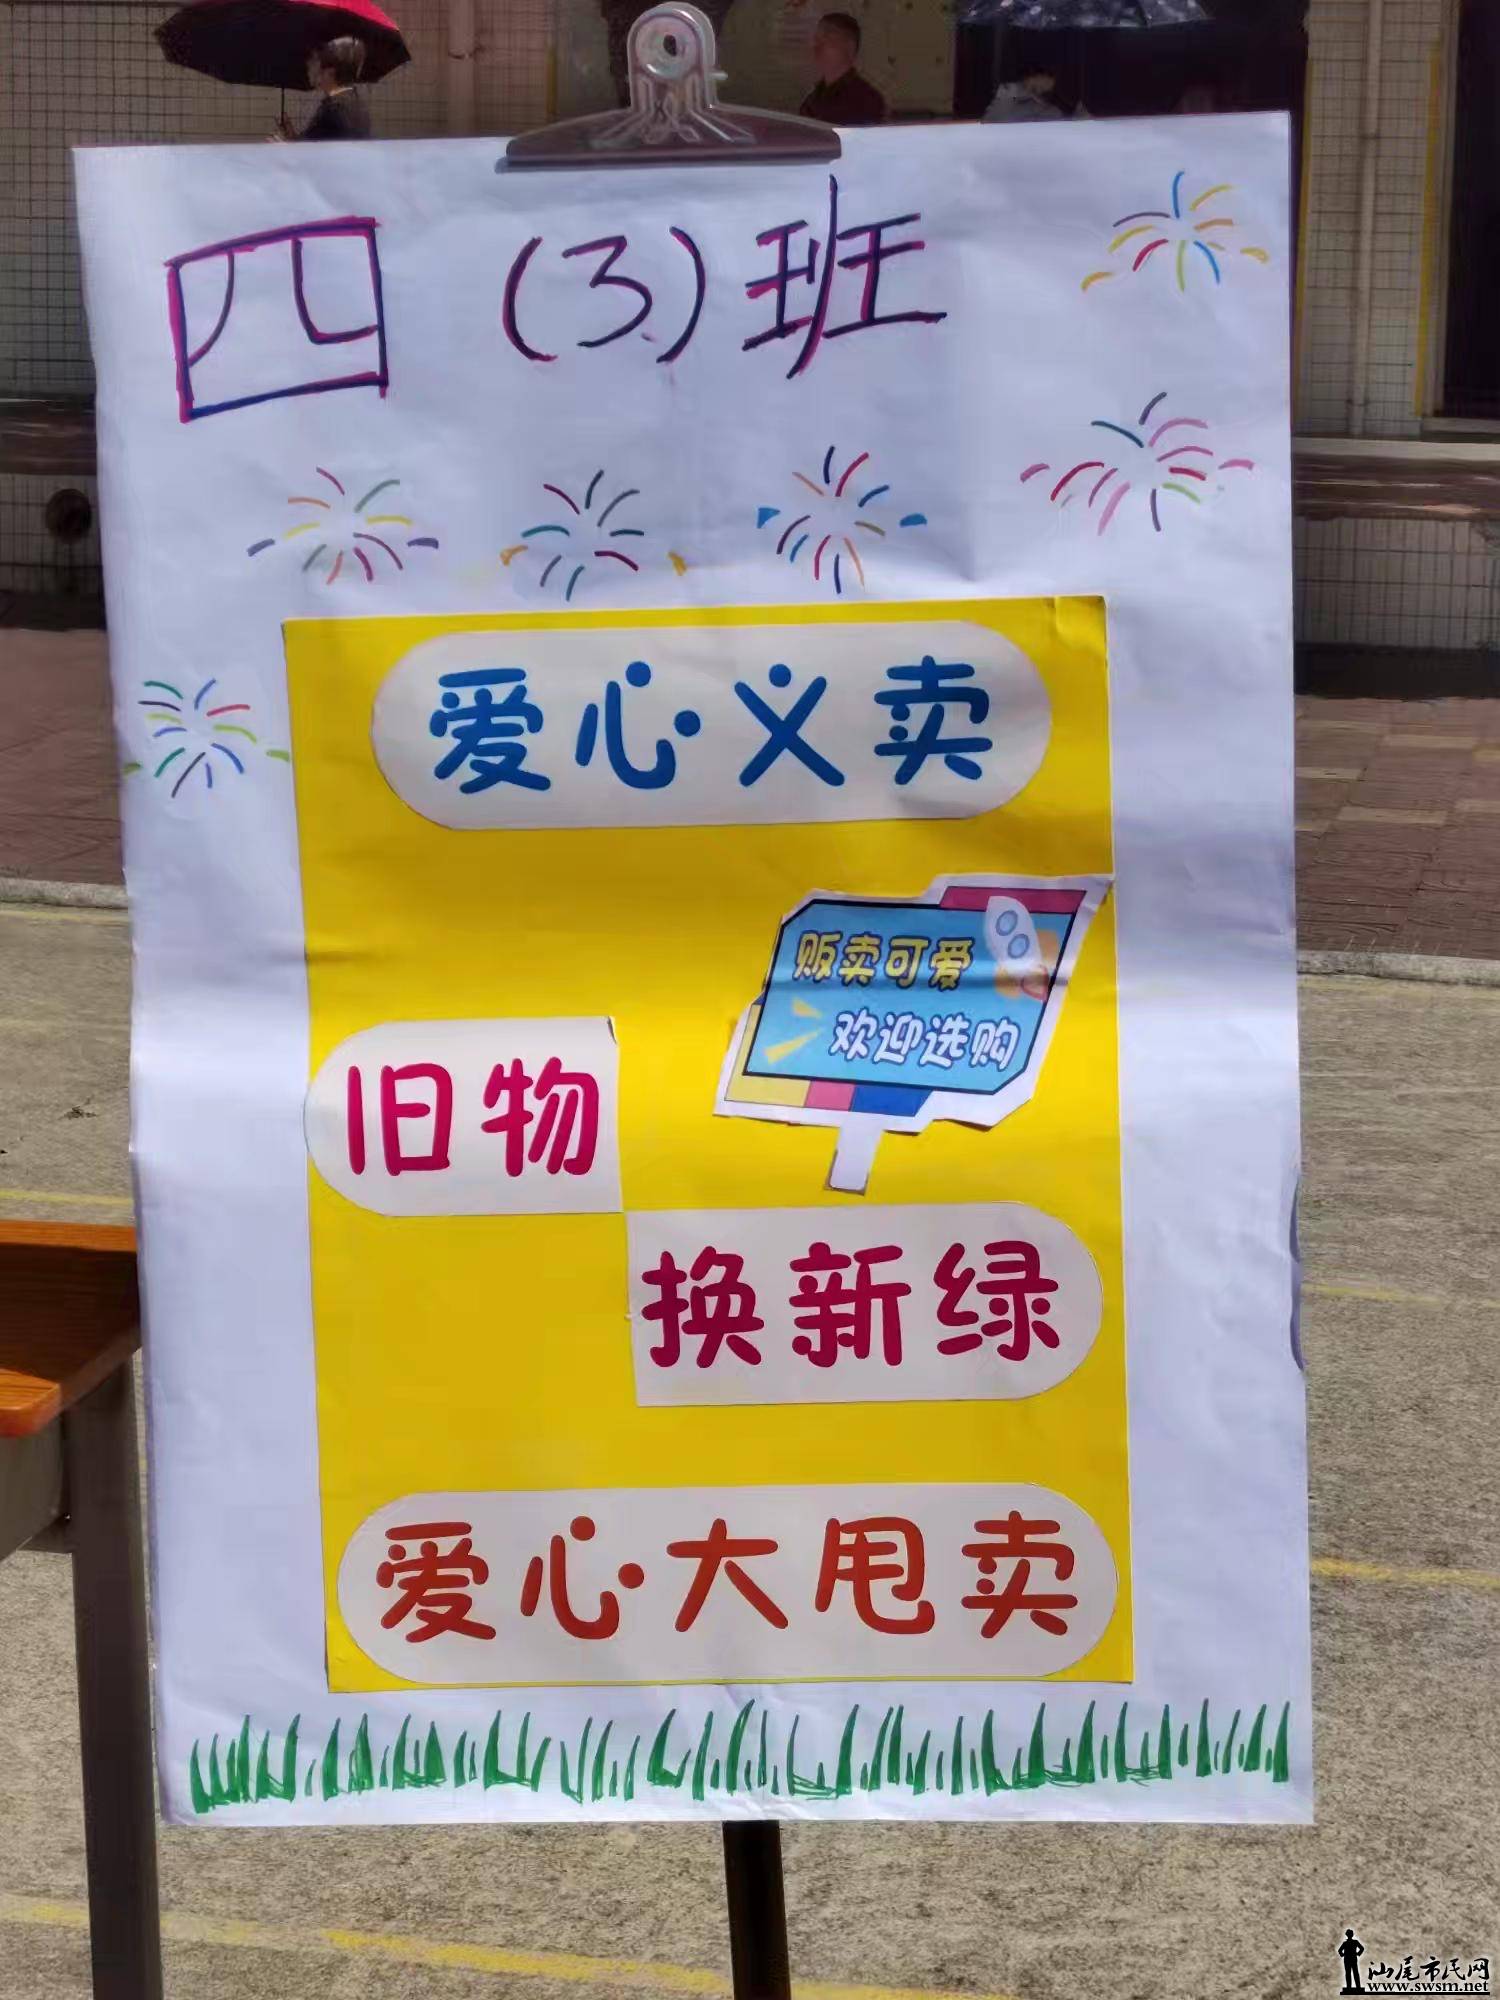 四（3）班
爱心义卖
贩卖可爱
欢迎选购
旧物
换新绿
爱心大甩卖
汕尾市民网
www.swsm.net